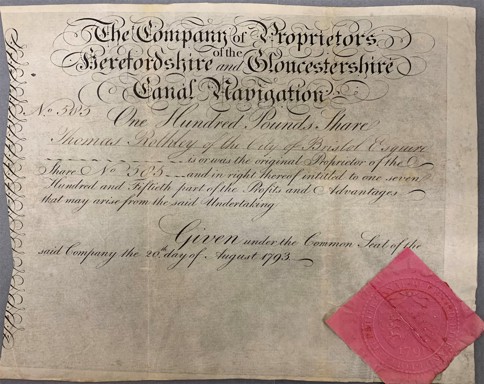 The Company of Proprietors
of the
Herefordshire and Gloucestershire
Canal Navigation
No. 505 One Hundred Pounds Share
Thomas of the City of Bristol Esquire
is or was the original Proprietor of the
Share No. 505 and in right thereof intitled to one seven
Hundred and Fiftieth part of the Profits and Advantages
that may arise from the said Undertaking
Given under the Common Seal of the
said Company the 20th day of August 1793